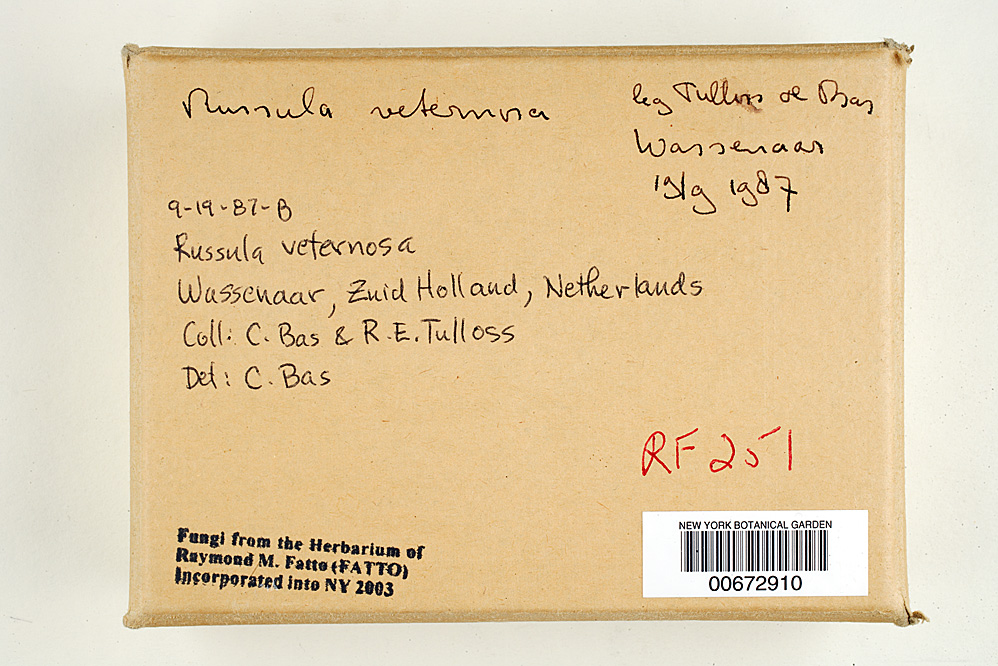 Russula veternosa
leg Tulloss & Bas
Wassenaar
19/9 1987
9-19-87-B
Russula veternosa
Wassenaar, Zuid Holland, Netherlands
Coll: C. Bas & R.E. Tulloss
Det: C. Bas
RF 251
Fungi from the Herbarium of
Raymond M. Fatto (FATTO)
Incorporated into NY 2003
NEW YORK BOTANICAL GARDEN
00672910